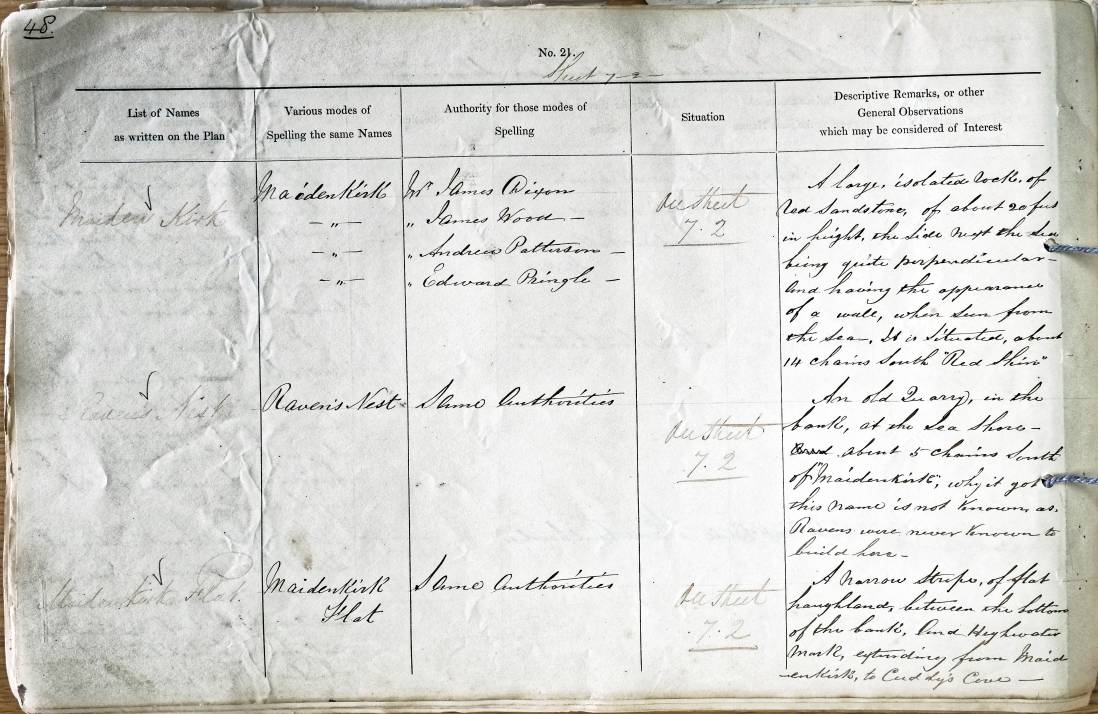 48.
No. 21.
Sheet 7-2-
List of Names
as written on the Plan
Various modes of
Spelling the same Names
Authority for those modes of
Spelling
Situation
Descriptive Remarks, or other
General Observations
which may be considered of Interest
Maiden Kirk
MaidenKirk
— „ —
— „ —
— „ —
Mr. James Dixon
„ James Wood —
„ Andrew Patterson —
„ Edward Pringle —
On Sheet
7.2
A large, isolated rock, of
Red Sandstone, of about 20 feet
in height, the side next the Sea
being quite perpendicular —
And having the appearance
of a wall, when seen from
the sea, It is Situated, about
14 chains South "Red Shin"
Raven's Nest
Raven's Nest
Same Authorities
On Sheet
7.2
An old Quarry, in the
bank, at the Sea Shore —
about 5 chains South
of "Maidenkirk", why it got
this name is not known, as
Ravens were never known to
build here —
Maidenkirk Flat.
Maidenkirk
Flat
Same Authorities
On Sheet
7.2
A narrow Stripe, of flat
haughland, between the bottom
of the bank, and Highwater
Mark, extending from Maid
-enkirk, to Cuddy's Cove —